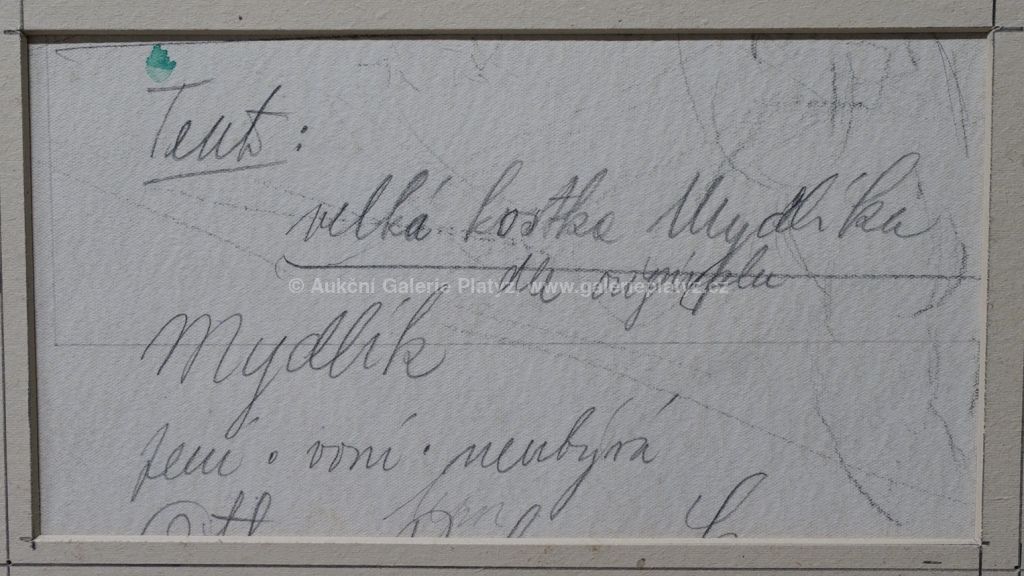 Text:
velká kostka Mydlíka
dle originálu
© Aukční Galerie Platýz, www.galerieplatyz.cz
Mydlík
pení · voní · neubývá